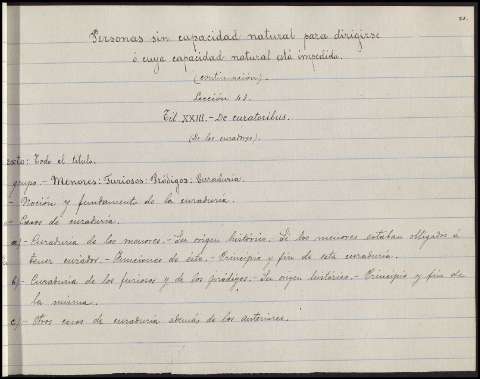 Personas sin capacidad natural para dirigirse
ó cuya capacidad natural está impedida.
(continuación).
Lección 42.
Tit XXIII. - De curatoribus.
(De los curadores).
exto: Todo el titulo.
grupo. - Menores: Furiosos: Pródigos: Curaduria.
- Noción y fundamento de la curaduria.
- Casos de curaduria.
a) - Curaduria de los menores. - Su origen histórico. Si los menores estaban obligados á
tener curador. - Funciones de éste. - Principio y fin de esta curaduria.
b) - Curaduria de los furiosos y de los pródigos. - Su origen histórico. - Principio y fin de
la misma.
c) - Otros casos de curaduria además de los anteriores.